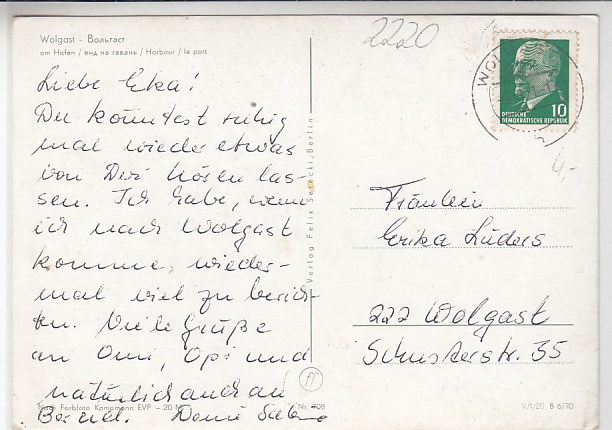 Wolgast - Вольгаст
am Hafen / вид на гавань / Harbour / le port
2220
WOL
10
DEUTSCHE
DEMOKRATISCHE REPUBLIK
4,-
Liebe Eka!
Du könntest ruhig
mal wieder etwas
von Dir hören las-
sen. Ich habe, wenn
ich nach Wolgast
komme, wieder-
mal viel zu berich-
ten. Viele Grüße
an Omi, Opi und
natürlich auch an
Bernd. Deine
Verlag Felix Setecki, Berlin
Fräulein
Erika Lüders
222 Wolgast
Schusterstr. 35
Nach Farbfoto Kampmann EVP – .20 M
Nr. 708
V/1/20 B 6/70